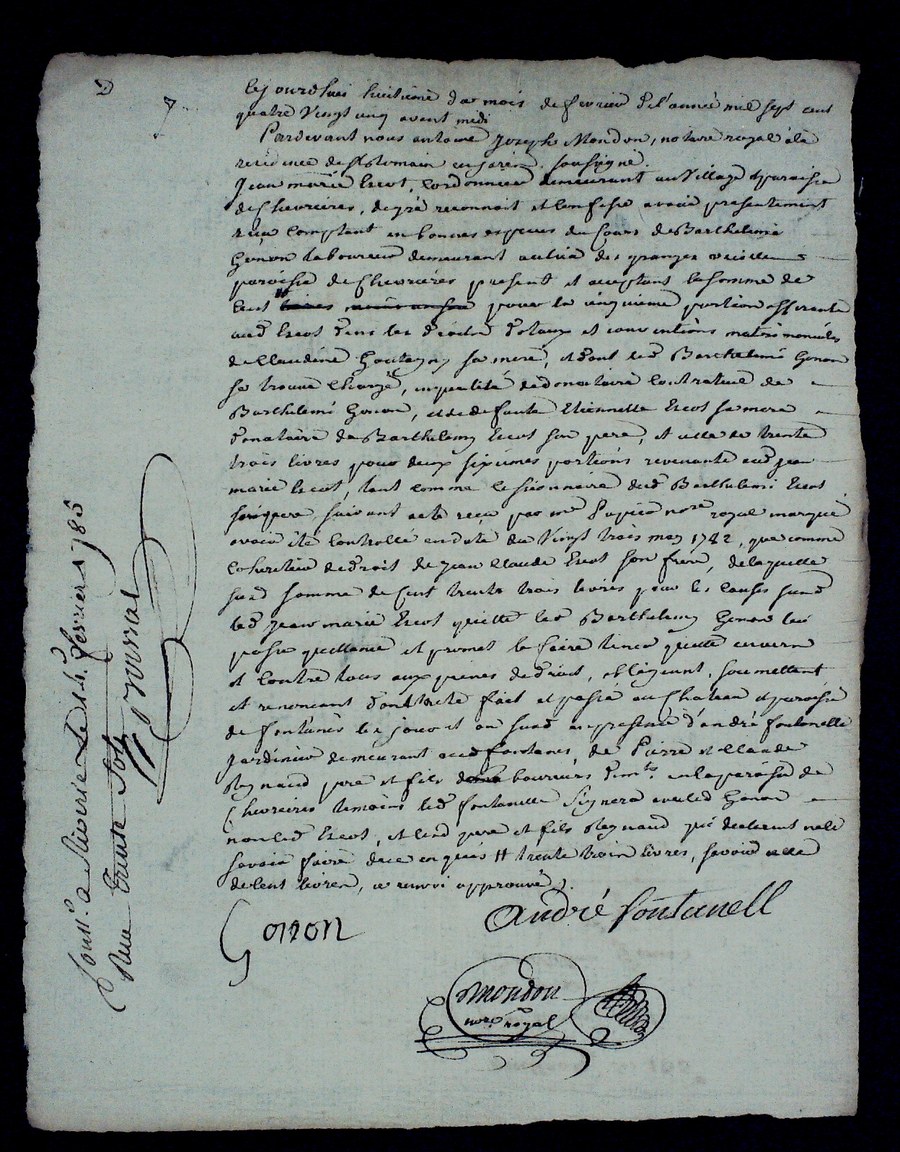 D
7
Cejourdhui huitieme du mois de fevrier de l'année mil sept cent
quatre vingt cinq avant midi
Pardevant nous antoine Joseph Mondon, notaire royal à la
residence de St Romain en jarêts soussigné.
Jean marie Crot, cordonnier demeurant au village et paroisse
de Chevrieres, de gré reconnoit et confesse avoir presentement
recu comptant en bonnes especes du cours de Barthelemie
Gonon laboureur demeurant au lieu des granges
paroisse de Chevrieres present et acceptant la somme de
cent # pour la cinquieme portion afferente
aud Crot dans les droits dotaux et conventions matrimoniales
de Claudine sa mere, et dont led Barthelemi Gonon
se trouve chargé, en qualité de donataire contractuel de
Barthelemi Gonon, et de defunte Etiennette Crot sa mere
donataire de Barthelemy Crot son pere, et celle de trente
trois livres pour deux sixiemes portions revenante aud jean
marie Crot, tant comme cessionnaire dud Barthelemi Crot
son frere suivant acte recu par me Dupied nore royal marqué
avoir été controllé en date du vingt trois may 1782, que comme
cohéritier de droit de Jean Claude Crot son frere, de laquelle
susd somme de cent trente trois livres pour les causes susd
led Jean marie Crot quitte led Barthelemy Gonon lui
passe quittance et promet le faire tenir quitte envers
et contre tous aux peines de droit, obligeant, soumettant
et renonçant dont acte fait et passé au Chateau et paroisse
de fontanès les jour et an susd en presence d'andré fontanelle
jardinier demeurant aud fontanes, de Pierre et Claude
Reynaud pere et fils laboureurs demts. en la paroisse de
Chevrieres temoins led fontanelle signera avec led Gonon
non led Crot, et lesd pere et fils Reynaud qui declarent ne le
savoir faire de ce enquis # trente trois livres, savoir celle
de cent livres, ce renvoi approuvé
Gonon
André fontanell
Mondon
nore. royal
Conlé. a St fevrier 1785
Reçu trente sols